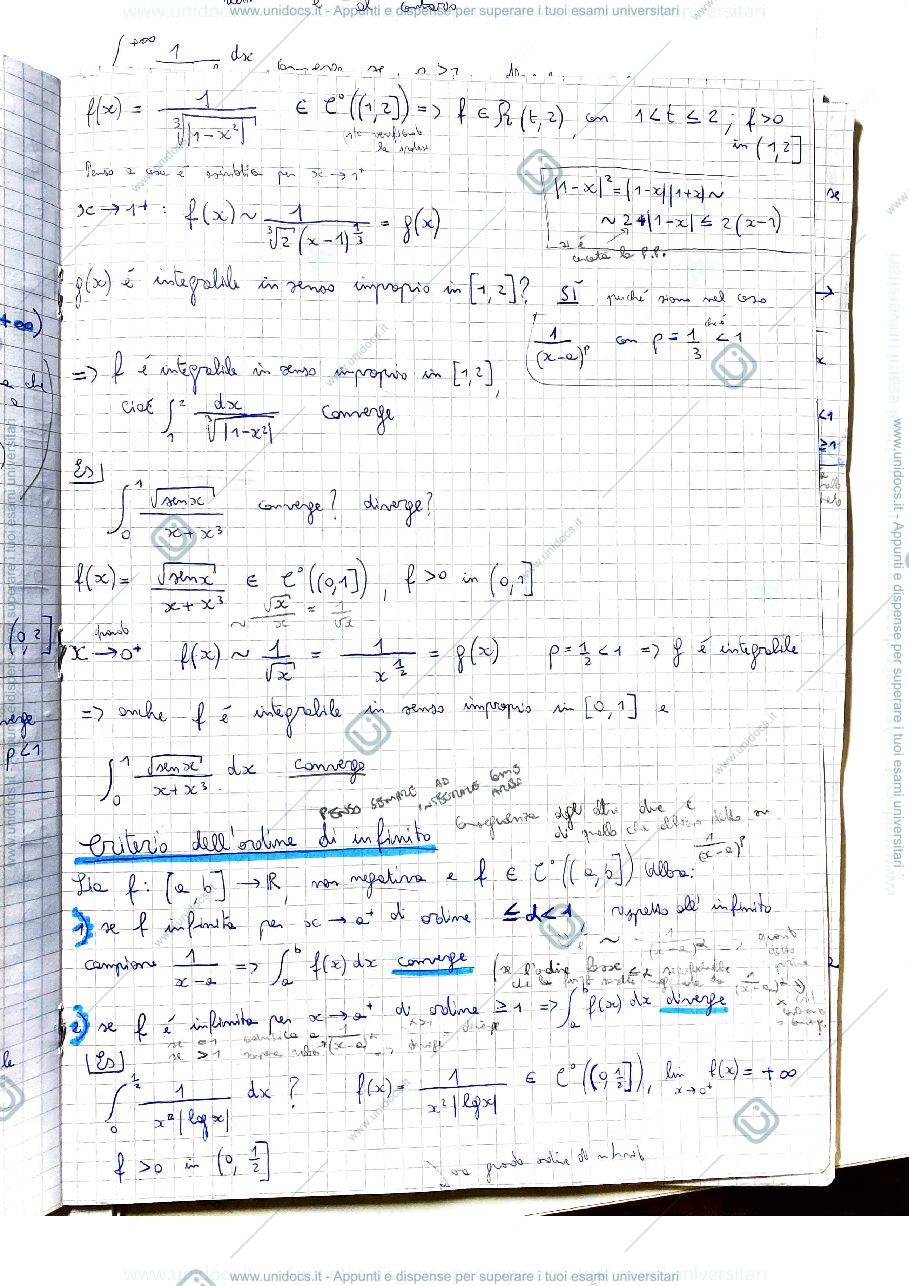 www.unidocs.it - Appunti e dispense per superare i tuoi esami universitari
∫ +∞ 1 dx
f(x) = 1/∛|1-x²| ∈ C°((1,2]) => f ∈ R(t,2), con 1<t≤2; f>0 in (1,2]
sto verificando le ipotesi
Penso a cosa è asintotica per x→1⁺
x→1⁺: f(x) ~ 1/(∛2 (x-1)^{1/3}) = g(x)
|1-x|² = |1-x||1+x| ~
~ 2|1-x| ≤ 2(x-1)
g(x) é integrabile in senso improprio in [1,2]? SÌ perché siamo nel caso
1/(x-a)^p con p = 1/3 che è < 1
=> f é integrabile in senso improprio in [1,2],
cioé ∫₁² dx/∛|1-x²| converge
Es
∫₀¹ √senx/(x+x³) converge? diverge?
f(x) = √senx/(x+x³) ∈ C°((0,1]), f>0 in (0,1]
~ √x/x = 1/√x
quando
x→0⁺ f(x) ~ 1/√x = 1/x^{1/2} = g(x) p = 1/2 < 1 => g é integrabile
=> anche f é integrabile in senso improprio in [0,1] e
∫₀¹ √senx/(x+x³) dx converge
PENSO SEMPRE AD INTEGRALE COME AREA
Criterio dell'ordine di infinito
conseguenza degli altri due e di quello che abbiamo detto su 1/(x-a)^p
Sia f: [a b] → R, non negativa e f ∈ C°((a,b]) allora:
1) se f infinita per x→a⁺ di ordine ≤α<1 rispetto all'infinito
campione 1/(x-a) => ∫ₐᵇ f(x) dx converge
2) se f é infinita per x→a⁺ di ordine ≥1 => ∫ₐᵇ f(x) dx diverge
Es
∫₀^{1/2} 1/(x²|logx|) dx ? f(x) = 1/(x²|logx|) ∈ C°((0,1/2]), lim x→0⁺ f(x) = +∞
f >0 in (0, 1/2]
www.unidocs.it - Appunti e dispense per superare i tuoi esami universitari